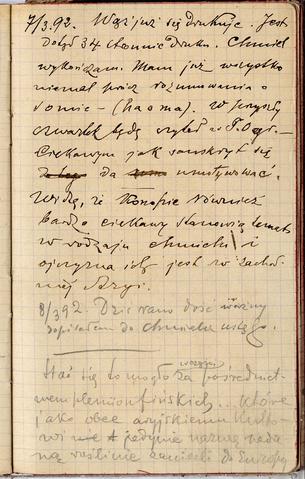 7/3.92. Wąż już się drukuje. Jest
dotąd 34 stronnic druku. Chmiel
wykończam. Mam już wszystko
niemal prócz rozumowania o
somie – (haoma). W przyszły
czwartek będę czytał w T. Ogr.
Ciekawym jak sanskryt się
da umotywować.
Widzę, że Konopie również
bardzo ciekawy stanowią temat
w rodzaju chmielu i
ojczyzna ich jest w zachod-
niej Azyi.
8/3 92. Dziś rano dość
dopisałem do chmielu
Stać się to mogło za pośrednict-
wem plemion fińskich... które
jako obce aryjskiemu
jedynie nazwę
rośline zanieśli do Europy